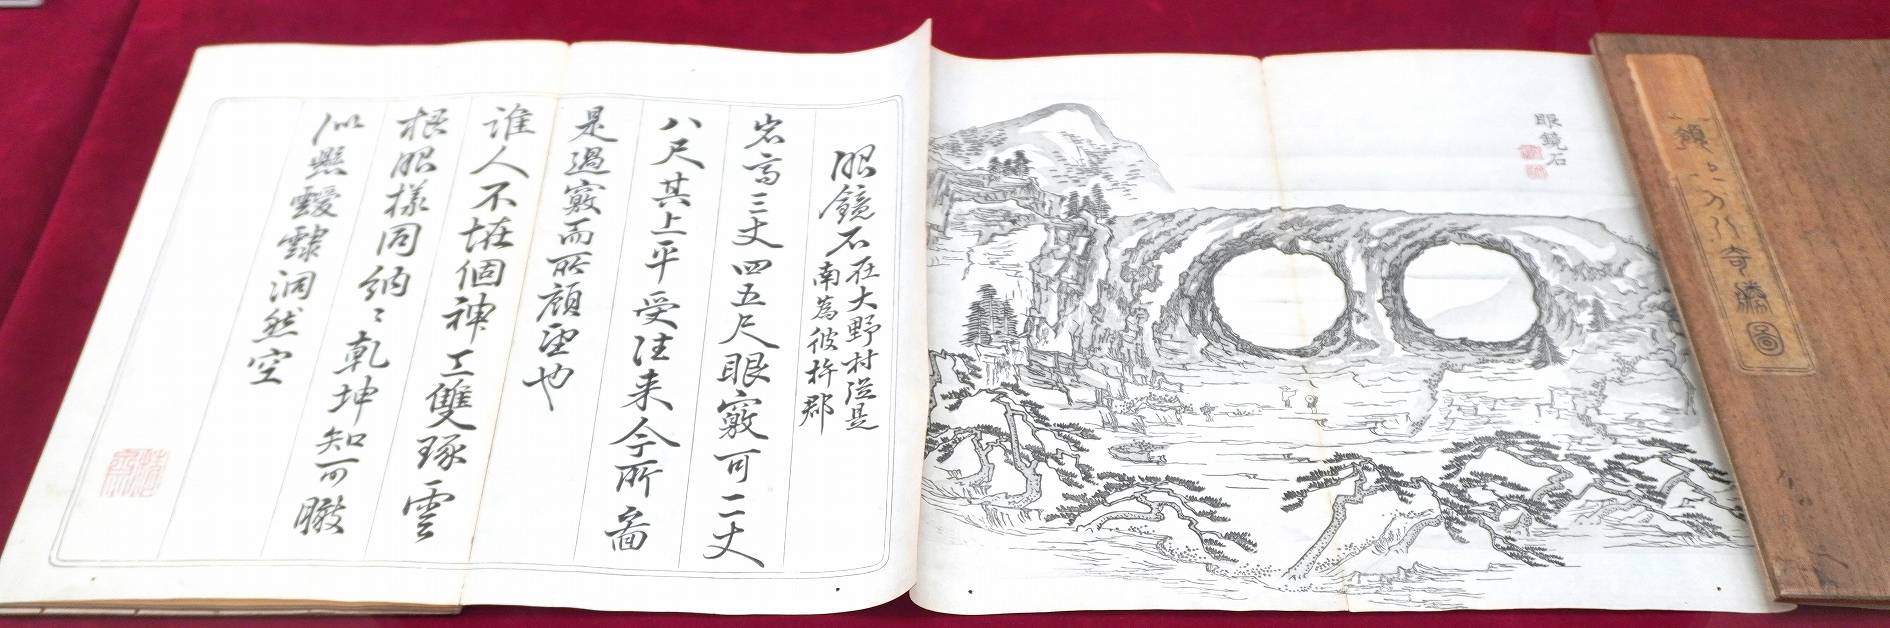 眼鏡石
奇勝圖
眼鏡石在大野村從是
南為彼杵郡
岩高三丈四五尺眼竅可二丈
八尺其上平受往来今所圖
是過竅而所顧望也
誰人不在個神工雙琢雲
根眼樣同納〻乾坤知可瞰
似熙靉靆洞然空